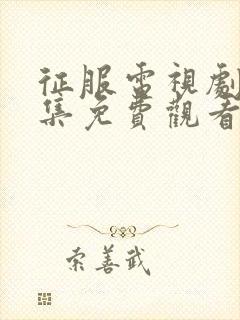 征服電視劇
集免費觀看
索善武